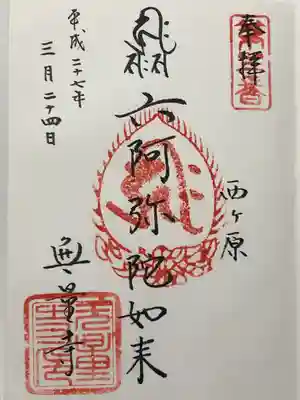 奉拝
西ヶ原
六阿弥陀如来
無量寺
平成二十七年
三月二十四日